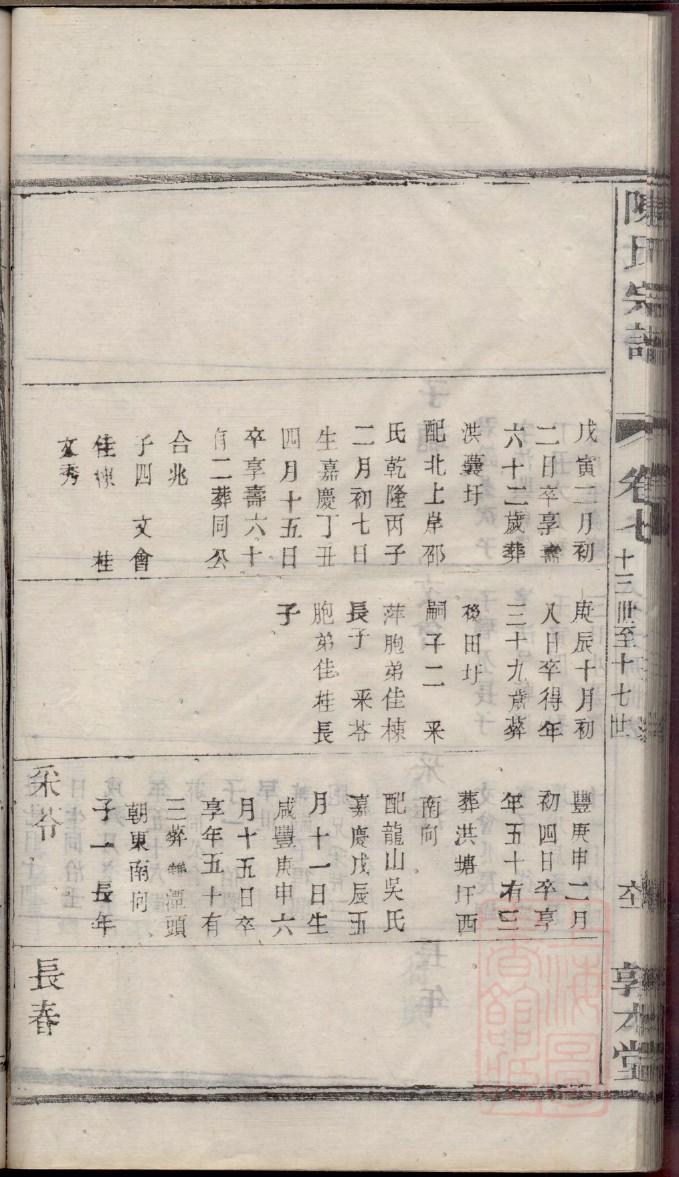 陳氏宗譜
卷七
十三世至十七世
敦本堂
戊寅二月初
二日卒享壽
六十二歲葬
洪曩圩
配北上岸邵
氏乾隆丙子
二月初七日
生嘉慶丁丑
四月十五日
卒享壽六十
有二葬同公
合兆
子四 文會
佳棟 桂
文秀
庚辰十月初
八日卒得年
三十九歲葬
後田圩
嗣子二 采
萍胞弟佳棟
長子 采苓
胞弟佳桂長
子
豐庚申二月
初四日卒享
年五十有三
葬洪塘圩西
南向
配龍山吳氏
嘉慶戊辰五
月十一日生
咸豐庚申六
月十五日卒
享年五十有
三葬 潭頭
朝東南向
子一 長年
采苓
長春